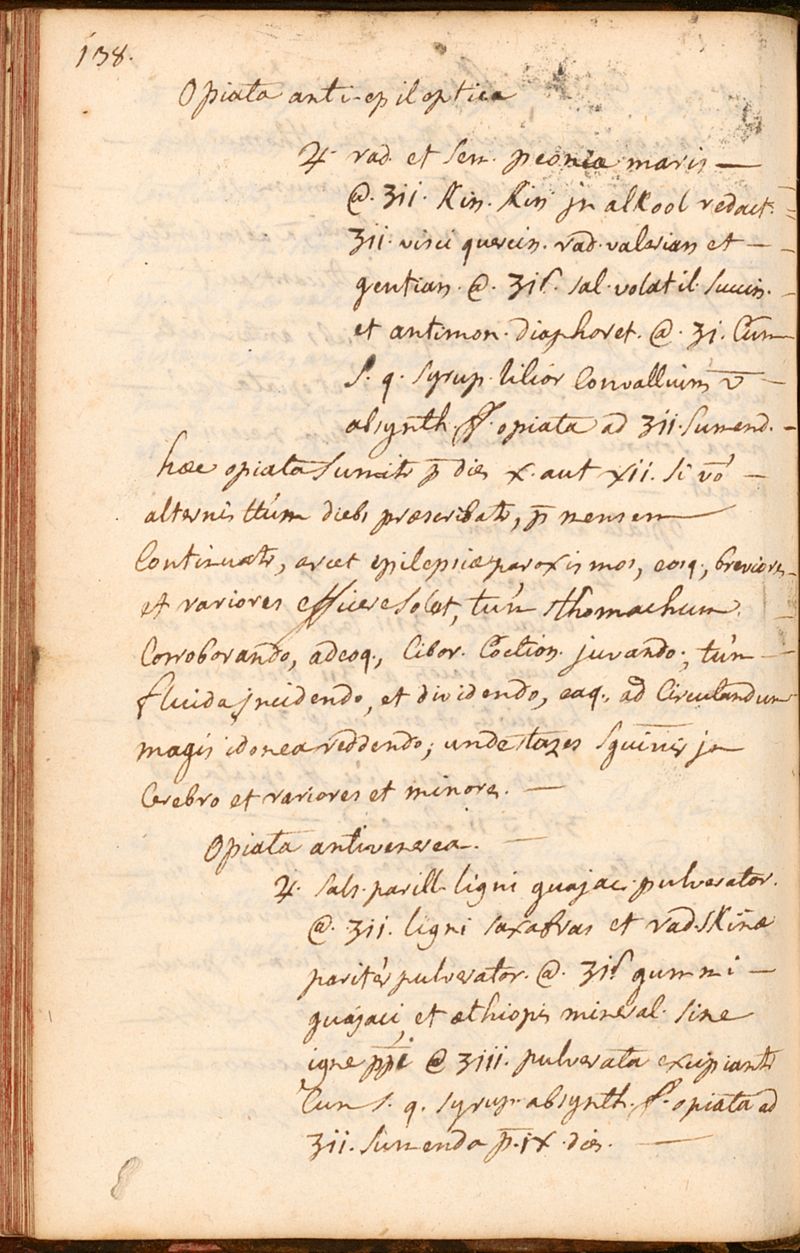 138.
Opiata anti-epileptica
♃. rad. et sem. peoniæ maris —
@. ʒii. Kin. Kin jn alkool redact.
ʒii. visci quercin. rad. valerian et —
gentian. @. ʒiſ. sal. volatil. succin.
et antimon. diaphoret. @. ʒi. Cum
S. q. syrup. lilior Convallium v̄ —
absynth. f. opiata ad ʒii. Sumend. —
hæc opiata Sumitr p̄ dies x. aut xii. Si vó —
alternis ttúm diebs præscribatr, p̄ mensem
Continuatr, arcet epilepsiæ paroxismos, eosq., breviores
et rariores efficere Solet, túm sthomachum
Corroborando, adeoq., Cibor. Coction. juvando; túm —
fluida jncidendo, et dividendo, eaq., ad Circulandum
magis idonea reddendo; unde stazes Sguinis jn
Cerebro et rariores et minores. —
Opiata antivenerea. —
♃. Sals. parill. ligni guajac. pulverator.
@. ʒii. ligni saxafras et rad. Skinæ
paritér pulverator. @. ʒiſ. gummi —
guajaci, et æthiopis mineral. sine
igne ppi @ ʒiii. pulverata excipiantr
Cum S. q. syrup. absynth. f. opiata ad
ʒii. Sumenda p̄. ix. dies. —
8